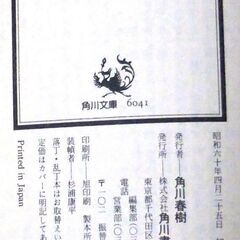 角川文庫 6041
昭和六十年四月二十五日
発行者 角川春樹
発行所 株式会社角川書
東京都千代田区
電話 編集部〇三
営業部〇三
〒一〇二 振替
印刷所 旭印刷 製本所
装幀者 杉浦康平
落丁・乱丁本はお取替えい
定価はカバーに明記してあ
Printed in Japan